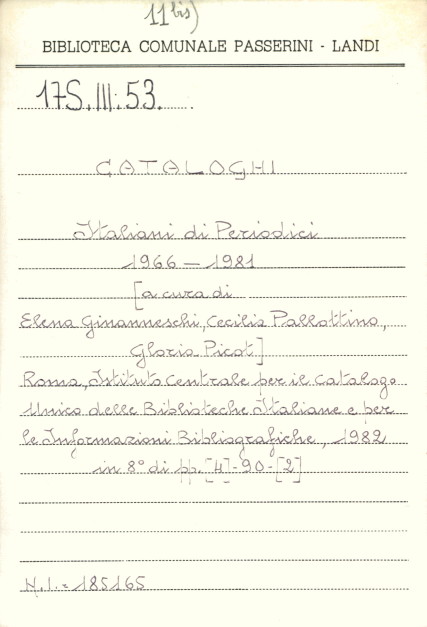 11 bis)
BIBLIOTECA COMUNALE PASSERINI - LANDI
17S.III.53.
CATALOGHI
Italiani di Periodici
1966 - 1981
[a cura di
Elena Ginanneschi, Cecilia Pallottino,
Gloria Picot]
Roma, Istituto Centrale per il Catalogo
Unico delle Biblioteche Italiane e per
le Informazioni Bibliografiche, 1982
in 8° di pp. [4]-90-[2]
N.I. = 185165